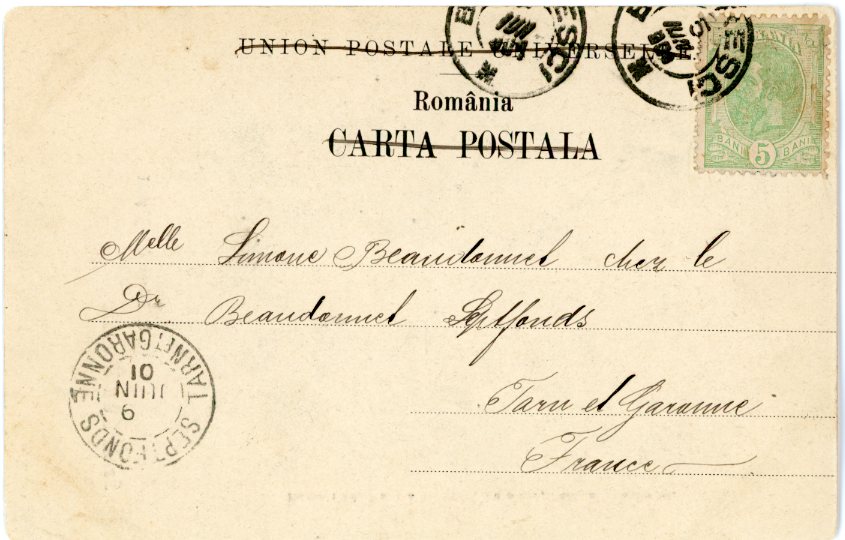 UNION POSTALE UNIVERSELLE
România
CARTA POSTALA
BANI 5 BANI
Melle Simone Beaudonnet chez le
Dr. Beaudonnet Septfonds
Tarn et Garonne
France
SEPTFONDS TARN-ET-GARONNE
9
JUIN
01